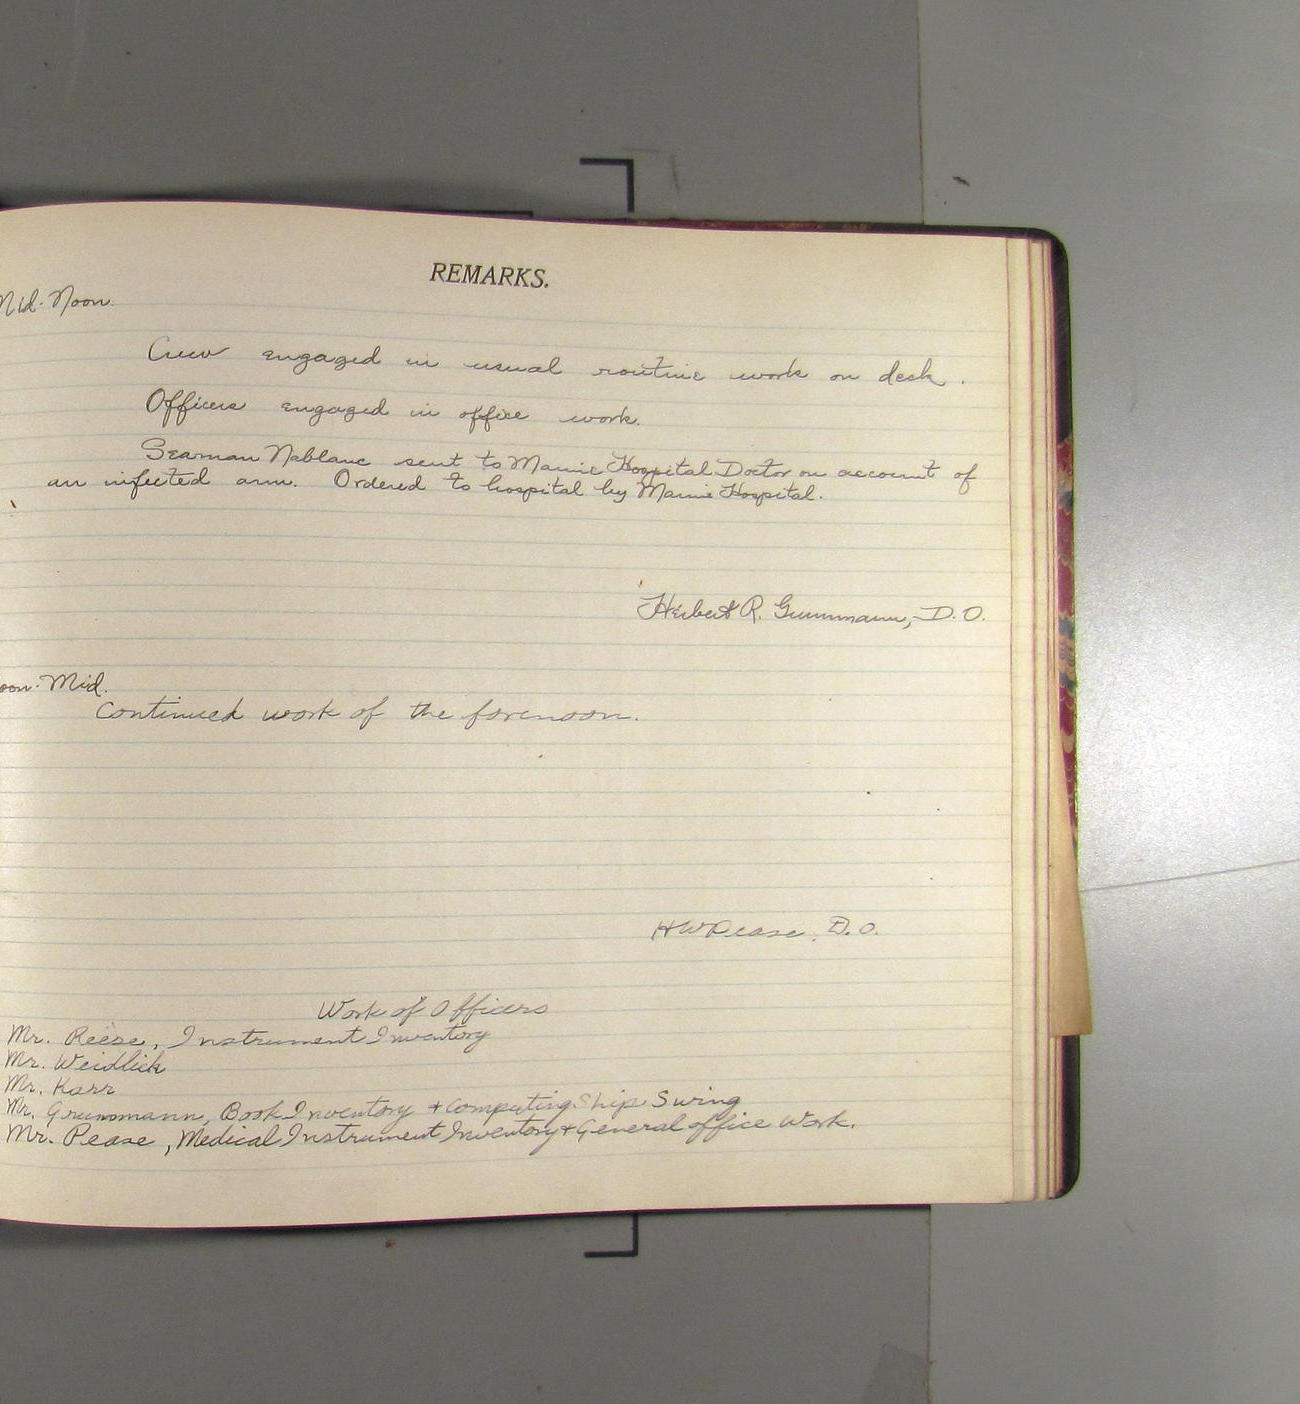 REMARKS.
Mid-Noon.
Crew engaged in usual routine work on deck.
Officers engaged in office work.
Seaman Nablanc sent to Marine Hospital Doctor on account of
an infected arm. Ordered to hospital by Marine Hospital.
Herbert R. Grummann, D.O.
oon-Mid.
Continued work of the forenoon.
HWPease, D.O.
Work of Officers
Mr. Reese, Instrument Inventory
Mr. Weidlich
Mr. Karr
Mr. Grummann, Book Inventory + Computing Ship Swing
Mr. Pease, Medical Instrument Inventory + General office Work.